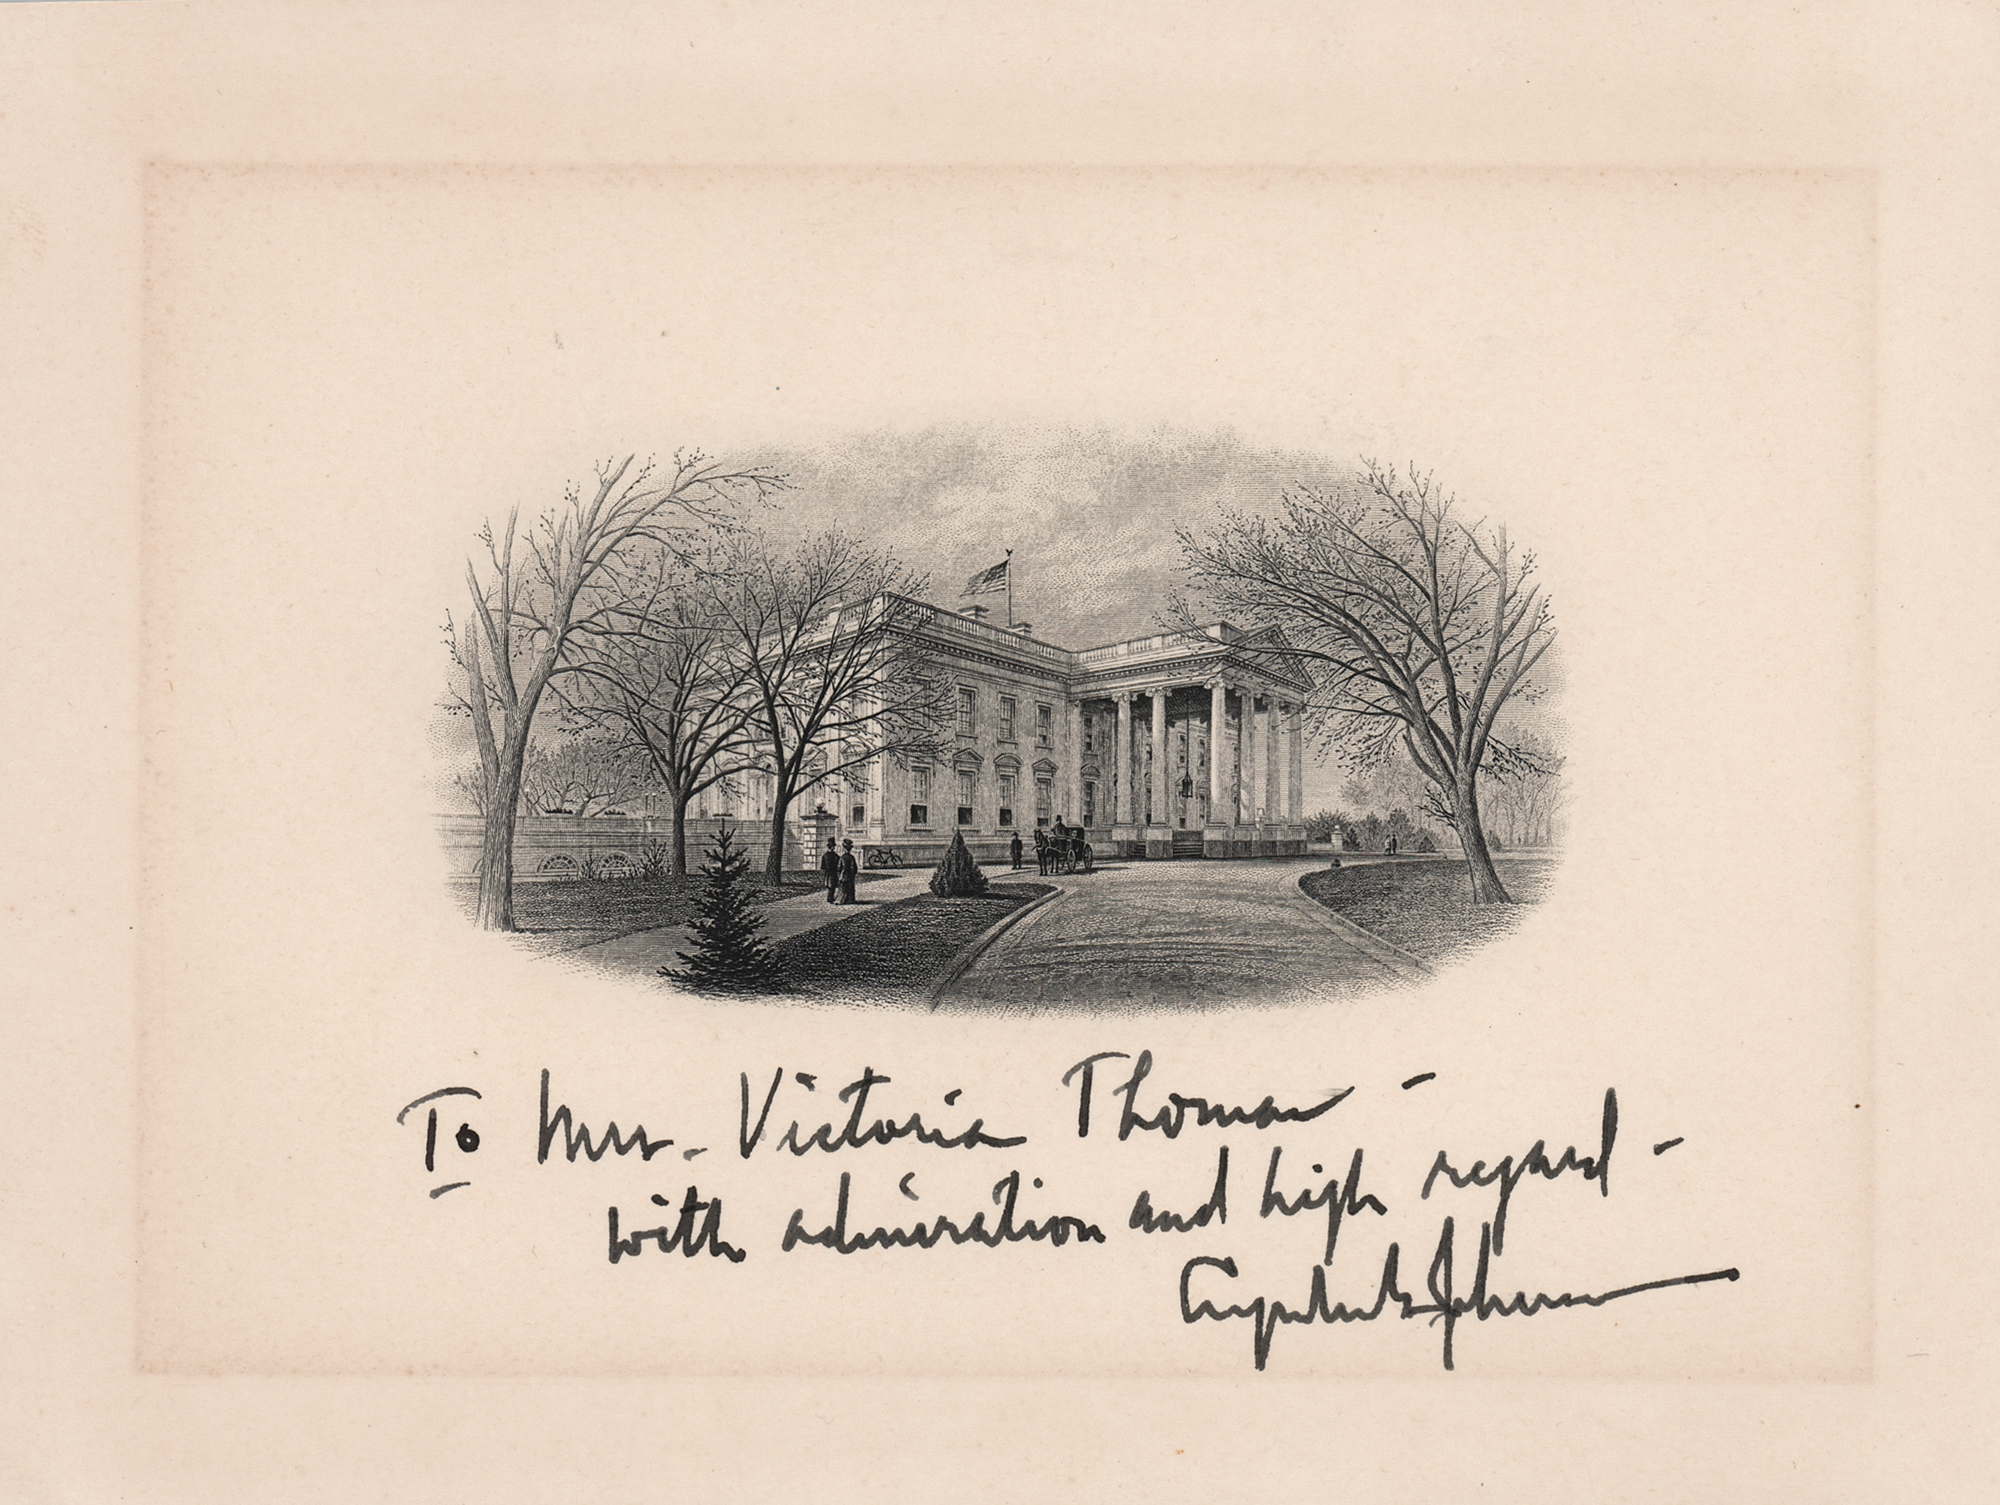 To Mrs. Victoria Thomas -
with admiration and high regard -
Lyndon B Johnson